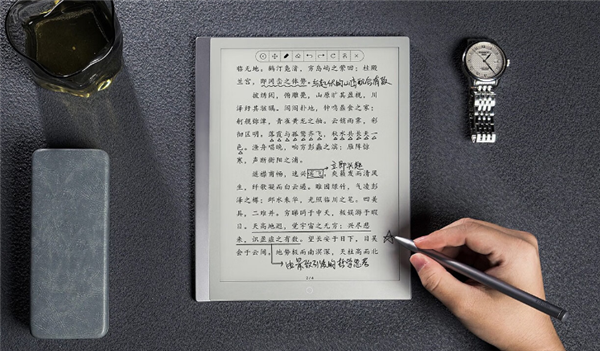 临无地；鹤汀凫渚，穷岛屿之萦回；桂殿
兰宫，即冈峦之体势。与起伏的山峦配合有致
披绣闼，俯雕甍，山原旷其盈视，川
泽纡其骇瞩。闾阎扑地，钟鸣鼎食之家；
舸舰弥津，青雀黄龙之舳。云销雨霁，彩
彻区明。落霞与孤鹜齐飞，秋水共长天一
色。渔舟唱晚，响穷彭蠡之滨；雁阵惊
寒，声断衡阳之浦。
立即兴起
遥襟甫畅，逸兴遄飞。爽籁发而清风
生，纤歌凝而白云遏。睢园绿竹，气凌彭
泽之樽；邺水朱华，光照临川之笔。四美
具，二难并。穷睇眄于中天，极娱游于暇
日。天高地迥，觉宇宙之无穷；兴尽悲
来，识盈虚之有数。望长安于日下，目吴
会于云间。地势极而南溟深，天柱高而北
由景致引发的哲学思考
2/4